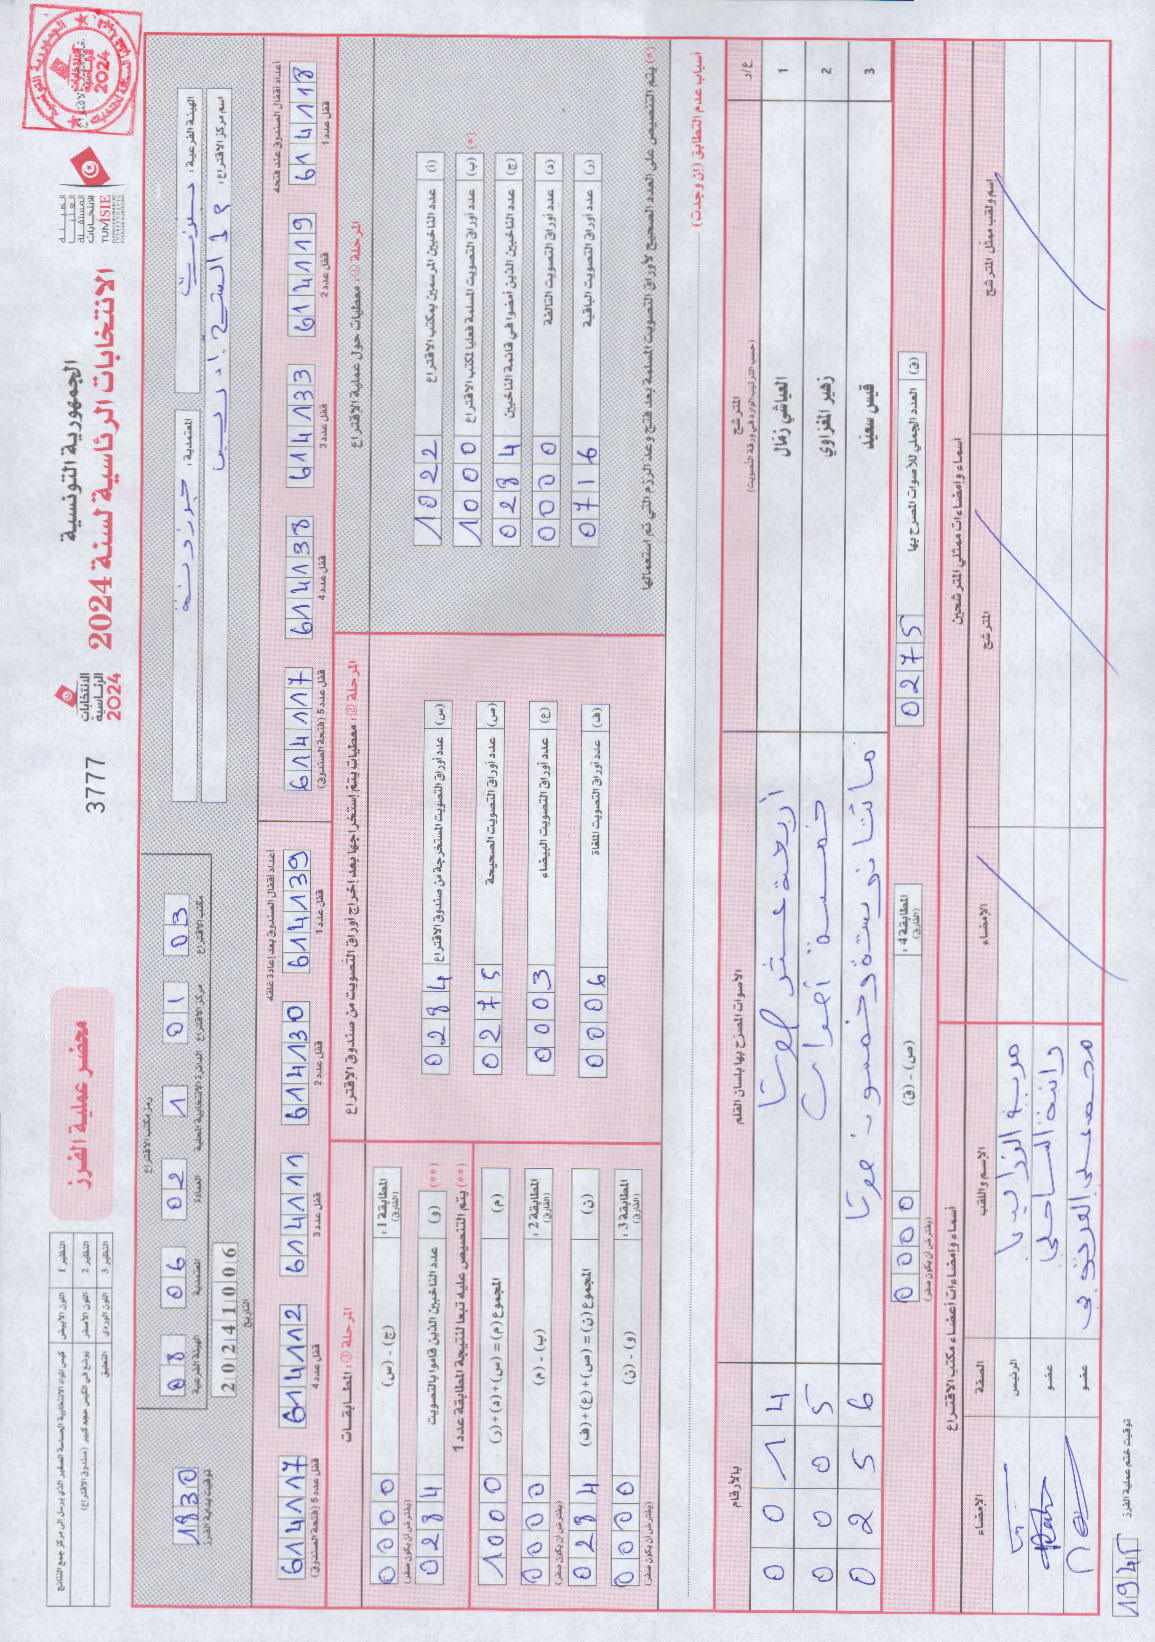 الجمهورية التونسية
الانتخابات الرئاسية لسنة 2024
الهيئة
العليا
المستقلة
للانتخابات
TUNISIE
الانتخابات
الرئاسية
2024
3777
محضر عملية الفرز
النظير 1
اللون الأبيض
النظير 2
اللون الأصفر
يوضع في الكيس
النظير 3
اللون الوردي
التعليق
الهيئة الفرعية:
المعتمدية:
اسم مركز الاقتراع:
رمز مكتب الاقتراع
08 الهيئة الفرعية
06 المعتمدية
02 العمادة
1 الدائرة الانتخابية المحلية
01 مركز الاقتراع
03 مكتب الاقتراع
20241006
التاريخ
1830
توقيت بداية الفرز
أعداد أقفال الصندوق عند فتحه
614118 قفل عدد 1
614119 قفل عدد 2
614133 قفل عدد 3
614138 قفل عدد 4
614117 قفل عدد 5 (فتحة الصندوق)
أعداد أقفال الصندوق بعد إعادة غلقه
614139 قفل عدد 1
614130 قفل عدد 2
614111 قفل عدد 3
614112 قفل عدد 4
614117 قفل عدد 5 (فتحة الصندوق)
المرحلة 1: معطيات حول عملية الاقتراع
(أ) عدد الناخبين المرسمين بمكتب الاقتراع 1022
(ب) عدد أوراق التصويت المسلمة فعليا لمكتب الاقتراع 1000 (*)
(ج) عدد الناخبين الذين أمضوا في قائمة الناخبين 0284
(د) عدد أوراق التصويت التالفة 0000
(ر) عدد أوراق التصويت الباقية 0716
(*) يتم التنصيص على العدد الصحيح لأوراق التصويت المسلمة بعد فتح وعد الرزم التي تم استعمالها
المرحلة 2: معطيات يتم استخراجها بعد إخراج أوراق التصويت من صندوق الاقتراع
(س) عدد أوراق التصويت المستخرجة من صندوق الاقتراع 0284
(ص) عدد أوراق التصويت الصحيحة 0275
(ع) عدد أوراق التصويت البيضاء 0003
(ف) عدد أوراق التصويت الملغاة 0006
المرحلة 3: المطابقات
المطابقة 1: (الفارق) (ج) - (س) 0000
(يفترض أن يكون صفر)
(و) عدد الناخبين الذين قاموا بالتصويت 0284 (**)
(**) يتم التنصيص عليه تبعا لنتيجة المطابقة عدد 1
(م) المجموع (م) = (س) + (د) + (ر) 1000
المطابقة 2: (الفارق) (ب) - (م) 0000
(يفترض أن يكون صفر)
(ن) المجموع (ن) = (ص) + (ع) + (ف) 0284
المطابقة 3: (الفارق) (و) - (ن) 0000
(يفترض أن يكون صفر)
أسباب عدم التطابق (إن وجدت)
ع/ر
المترشح
(حسب الترتيب الوارد في ورقة التصويت)
الأصوات المصرح بها بلسان القلم
بالأرقام
1 العياشي زمال أربعة عشر صوتا 0014
2 زهير المغزاوي خمسة أصوات 0005
3 قيس سعيد مائتان وستة وخمسون صوتا 0256
(ق) العدد الجملي للأصوات المصرح بها 0275
المطابقة 4: (الفارق) (ص) - (ق) 0000
(يفترض أن يكون صفر)
أسماء وإمضاءات ممثلي المترشحين
اسم ولقب ممثل المترشح
المترشح
الإمضاء
أسماء وإمضاءات أعضاء مكتب الاقتراع
الاسم واللقب
الصفة
الإمضاء
الرئيس
رانية الساحلي عضو
محمد علي عضو
توقيت ختم عملية الفرز
1945